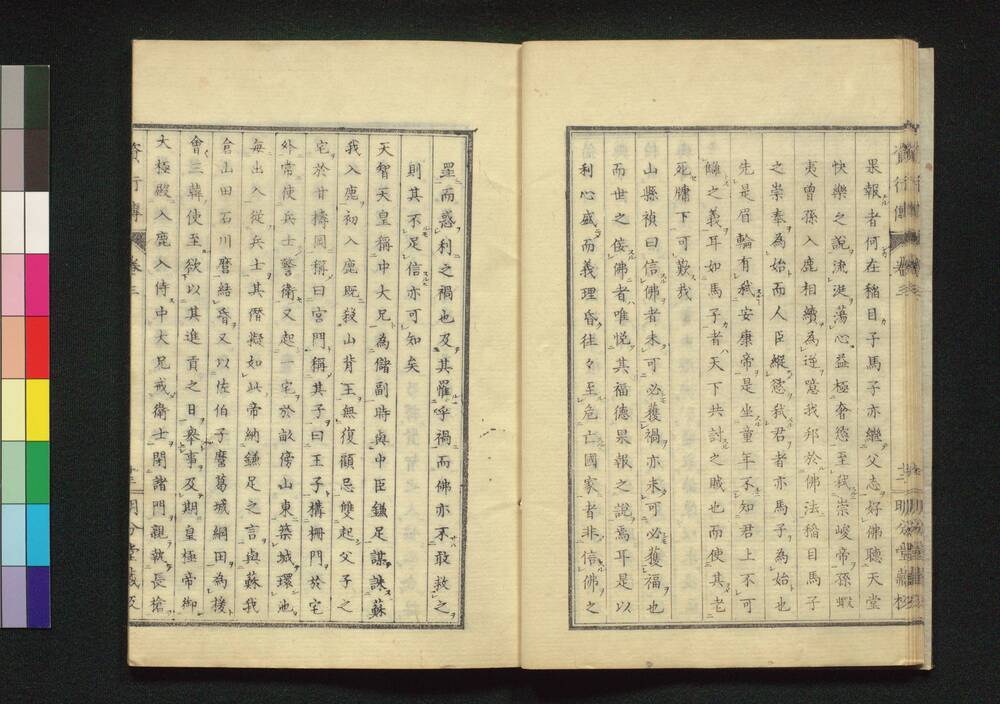 果報者何在稲目子馬子亦繼父志好佛聽天堂
快樂之說流涎蕩心益極奢慾至弑崇峻帝孫蝦
夷曽孫入鹿相續為逆噫我邦於佛法稲目馬子
之崇奉為始而人臣縦慾弑君者亦馬子為始也
先是眉輪有弑安康帝是坐童年不知君上不可
讎之義耳如馬子者天下共討之賊也而使其老
死牖下可歎哉
山縣禎曰信佛者未可必獲禍亦未可必獲福也
而世之侫佛者唯悦其福徳果報之說焉耳是以
利心盛而義理昏往々至危亡國家者非信佛之
罪而惑利之禍也及其罹呼禍而佛亦不敢救之
則其不足信亦可知矣
天智天皇稱中大兄為儲副時與中臣鎌足謀誅蘇
我入鹿初入鹿既殺山背王無復顧忌雙起父子之
宅於甘擣岡稱曰宮門稱其子曰王子構柵門於宅
外常使兵士警衛又起一宅於畝傍山東築城環池
毎出入從兵士其僭擬如此帝納鎌足之言與蘇我
倉山田石川麿結昏又以佐伯子麿葛城綱田為援
會三韓使至欲以其進貢之日擧事及期皇極帝御
大極殿入鹿入侍中大兄戒衛士閉諸門親執長槍
資行傳
巻三